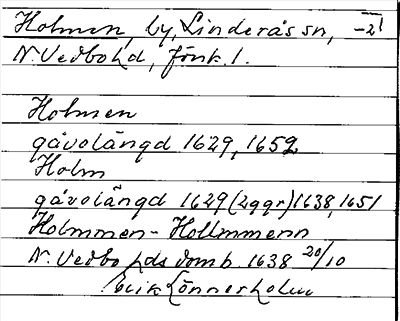 Holmen, by, Linderås sn, -21
N. Vedbo hd, Jönk. l.
Holmen
gåvolängd 1629, 1652
Holm
gåvolängd 1629 (2ggr) 1638, 1651
Holmmen - Hollmmenn
N. Vedbo hds domb. 1638 20/10
Erik Lönnerholm